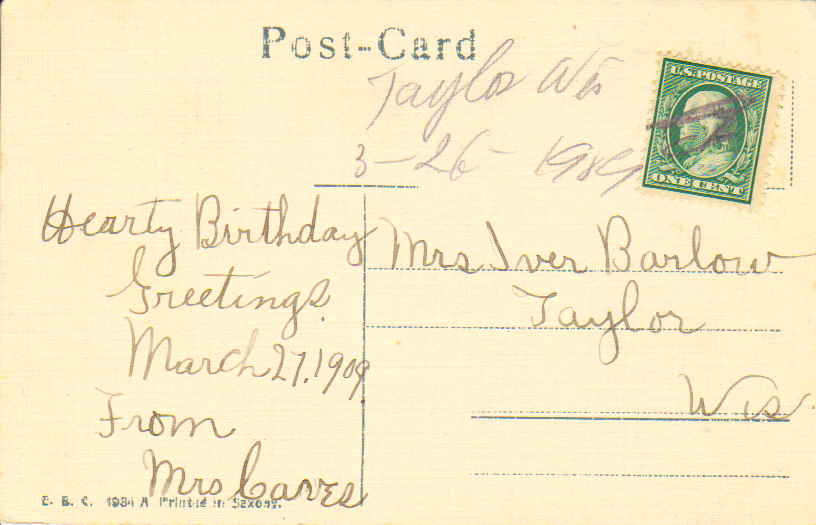 Post-Card
Taylor Wis
3-26-1909
U.S. POSTAGE
ONE CENT
Hearty Birthday
Greetings.
March 27, 1909
From
Mrs Caves
Mrs Iver Barlow
Taylor
Wis.
E. B. C. 1934 A Printed in Saxony.